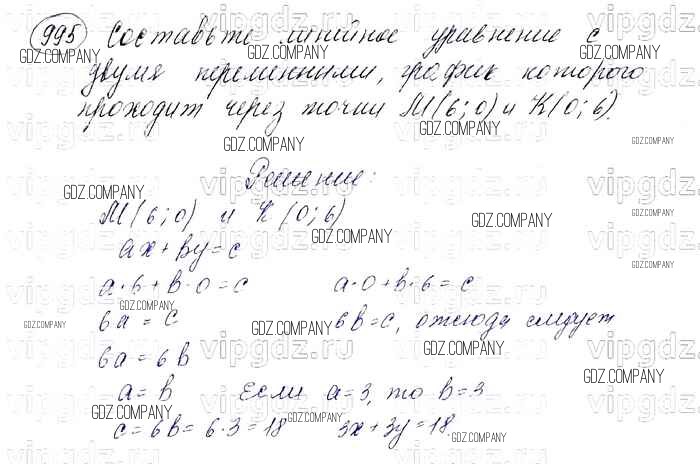 995 Составьте линейное уравнение с
двумя переменными, график которого
проходит через точки M(6; 0) и K(0; 6).
Решение:
M(6; 0) и K(0; 6)
ax + by = c
a·6 + b·0 = c a·0 + b·6 = c
6a = c 6b = c, отсюда следует
6a = 6b
a = b Если a = 3, то b = 3
c = 6b = 6·3 = 18 3x + 3y = 18.